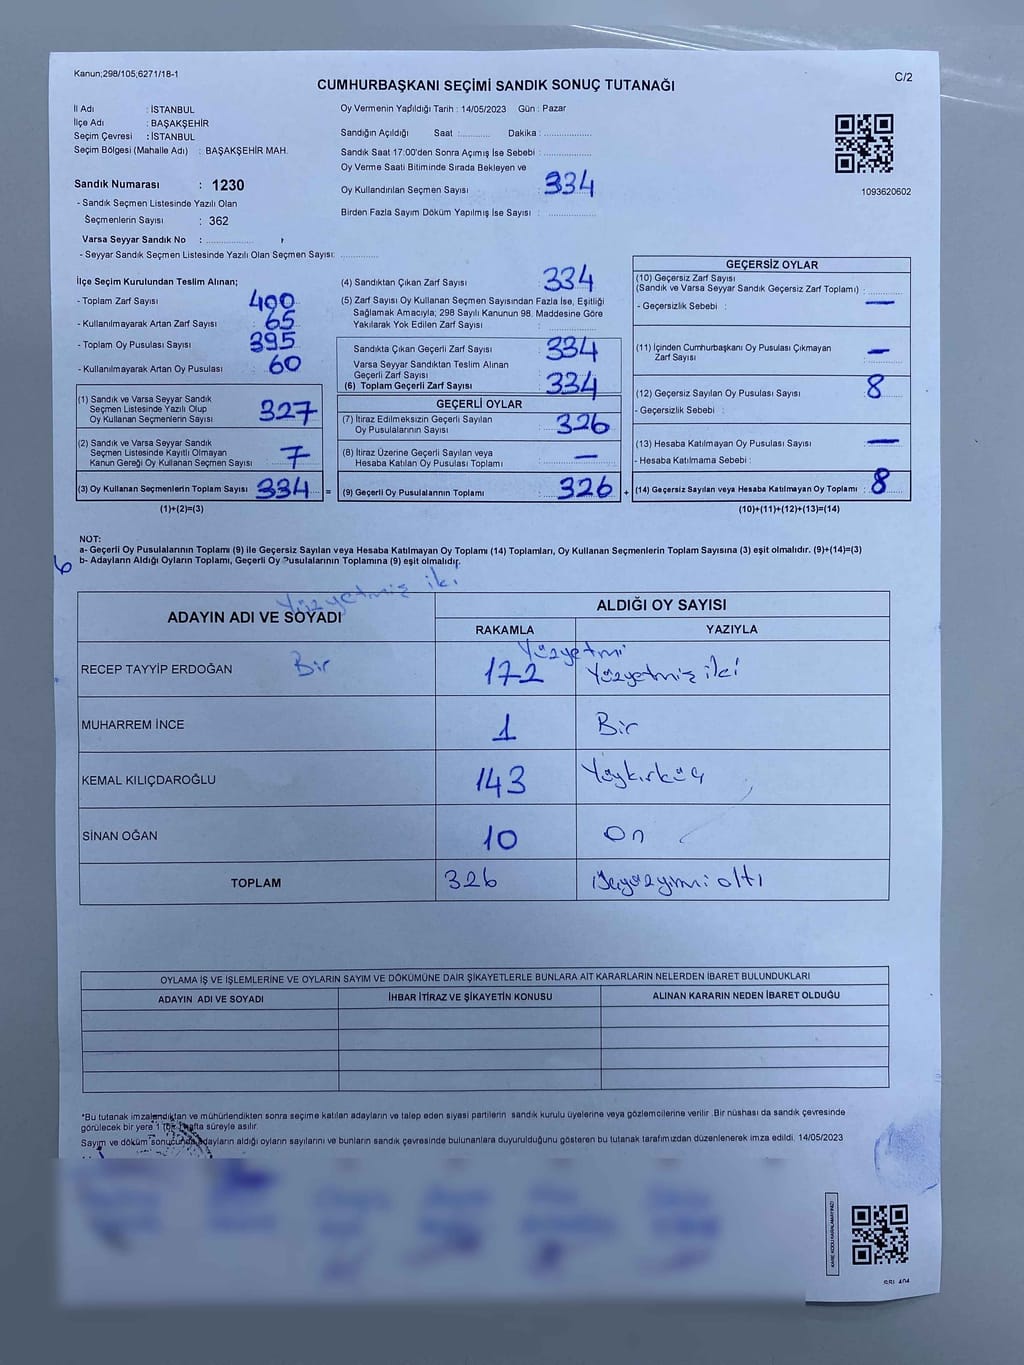 Kanun;298/105;6271/18-1
C/2
CUMHURBAŞKANI SEÇİMİ SANDIK SONUÇ TUTANAĞI
İl Adı : İSTANBUL
İlçe Adı : BAŞAKŞEHİR
Seçim Çevresi : İSTANBUL
Seçim Bölgesi (Mahalle Adı) : BAŞAKŞEHİR MAH.
Sandık Numarası : 1230
- Sandık Seçmen Listesinde Yazılı Olan
Seçmenlerin Sayısı : 362
Varsa Seyyar Sandık No :
- Seyyar Sandık Seçmen Listesinde Yazılı Olan Seçmen Sayısı:
Oy Vermenin Yapıldığı Tarih : 14/05/2023 Gün : Pazar
Sandığın Açıldığı Saat : Dakika :
Sandık Saat 17:00'den Sonra Açımış İse Sebebi :
Oy Verme Saati Bitiminde Sırada Bekleyen ve
Oy Kullandırılan Seçmen Sayısı : 334
Birden Fazla Sayım Döküm Yapılmış İse Sayısı :
1093620602
İlçe Seçim Kurulundan Teslim Alınan;
- Toplam Zarf Sayısı 400
- Kullanılmayarak Artan Zarf Sayısı : 65
- Toplam Oy Pusulası Sayısı 395
- Kullanılmayarak Artan Oy Pusulası : 60
(1) Sandık ve Varsa Seyyar Sandık
Seçmen Listesinde Yazılı Olup
Oy Kullanan Seçmenlerin Sayısı : 327
(2) Sandık ve Varsa Seyyar Sandık
Seçmen Listesinde Kayıtlı Olmayan
Kanun Gereği Oy Kullanan Seçmen Sayısı : 7
(3) Oy Kullanan Seçmenlerin Toplam Sayısı : 334 =
(1)+(2)=(3)
(4) Sandıktan Çıkan Zarf Sayısı 334
(5) Zarf Sayısı Oy Kullanan Seçmen Sayısından Fazla İse, Eşitliği
Sağlamak Amacıyla; 298 Sayılı Kanunun 98. Maddesine Göre
Yakılarak Yok Edilen Zarf Sayısı :
Sandıkta Çıkan Geçerli Zarf Sayısı : 334
Varsa Seyyar Sandıktan Teslim Alınan
Geçerli Zarf Sayısı :
(6) Toplam Geçerli Zarf Sayısı : 334
GEÇERLİ OYLAR
(7) İtiraz Edilmeksizin Geçerli Sayılan
Oy Pusulalarının Sayısı : 326
(8) İtiraz Üzerine Geçerli Sayılan veya
Hesaba Katılan Oy Pusulası Toplamı : —
(9) Geçerli Oy Pusulalarının Toplamı : 326 +
GEÇERSİZ OYLAR
(10) Geçersiz Zarf Sayısı
(Sandık ve Varsa Seyyar Sandık Geçersiz Zarf Toplamı) :
- Geçersizlik Sebebi : —
(11) İçinden Cumhurbaşkanı Oy Pusulası Çıkmayan
Zarf Sayısı : —
(12) Geçersiz Sayılan Oy Pusulası Sayısı : 8
- Geçersizlik Sebebi :
(13) Hesaba Katılmayan Oy Pusulası Sayısı : —
- Hesaba Katılmama Sebebi :
(14) Geçersiz Sayılan veya Hesaba Katılmayan Oy Toplamı : 8
(10)+(11)+(12)+(13)=(14)
NOT:
a- Geçerli Oy Pusulalarının Toplamı (9) ile Geçersiz Sayılan veya Hesaba Katılmayan Oy Toplamı (14) Toplamları, Oy Kullanan Seçmenlerin Toplam Sayısına (3) eşit olmalıdır. (9)+(14)=(3)
b- Adayların Aldığı Oyların Toplamı, Geçerli Oy Pusulalarının Toplamına (9) eşit olmalıdır.
Yüzyetmiş iki
ADAYIN ADI VE SOYADI
ALDIĞI OY SAYISI
RAKAMLA YAZIYLA
Yüzyetmi
RECEP TAYYİP ERDOĞAN Bir 172 Yüzyetmiş iki
MUHARREM İNCE 1 Bir
KEMAL KILIÇDAROĞLU 143 Yüzkırküç
SİNAN OĞAN 10 On
TOPLAM 326
OYLAMA İŞ VE İŞLEMLERİNE VE OYLARIN SAYIM VE DÖKÜMÜNE DAİR ŞİKAYETLERLE BUNLARA AİT KARARLARIN NELERDEN İBARET BULUNDUKLARI
ADAYIN ADI VE SOYADI İHBAR İTİRAZ VE ŞİKAYETİN KONUSU ALINAN KARARIN NEDEN İBARET OLDUĞU
*Bu tutanak imzalandıktan ve mühürlendikten sonra seçime katılan adayların ve talep eden siyasi partilerin sandık kurulu üyelerine veya gözlemcilerine verilir .Bir nüshası da sandık çevresinde
görülecek bir yere 1 hafta süreyle asılır.
Sayım ve döküm sonucunda adayların aldığı oyların sayılarını ve bunların sandık çevresinde bulunanlara duyurulduğunu gösteren bu tutanak tarafımızdan düzenlenerek imza edildi. 14/05/2023